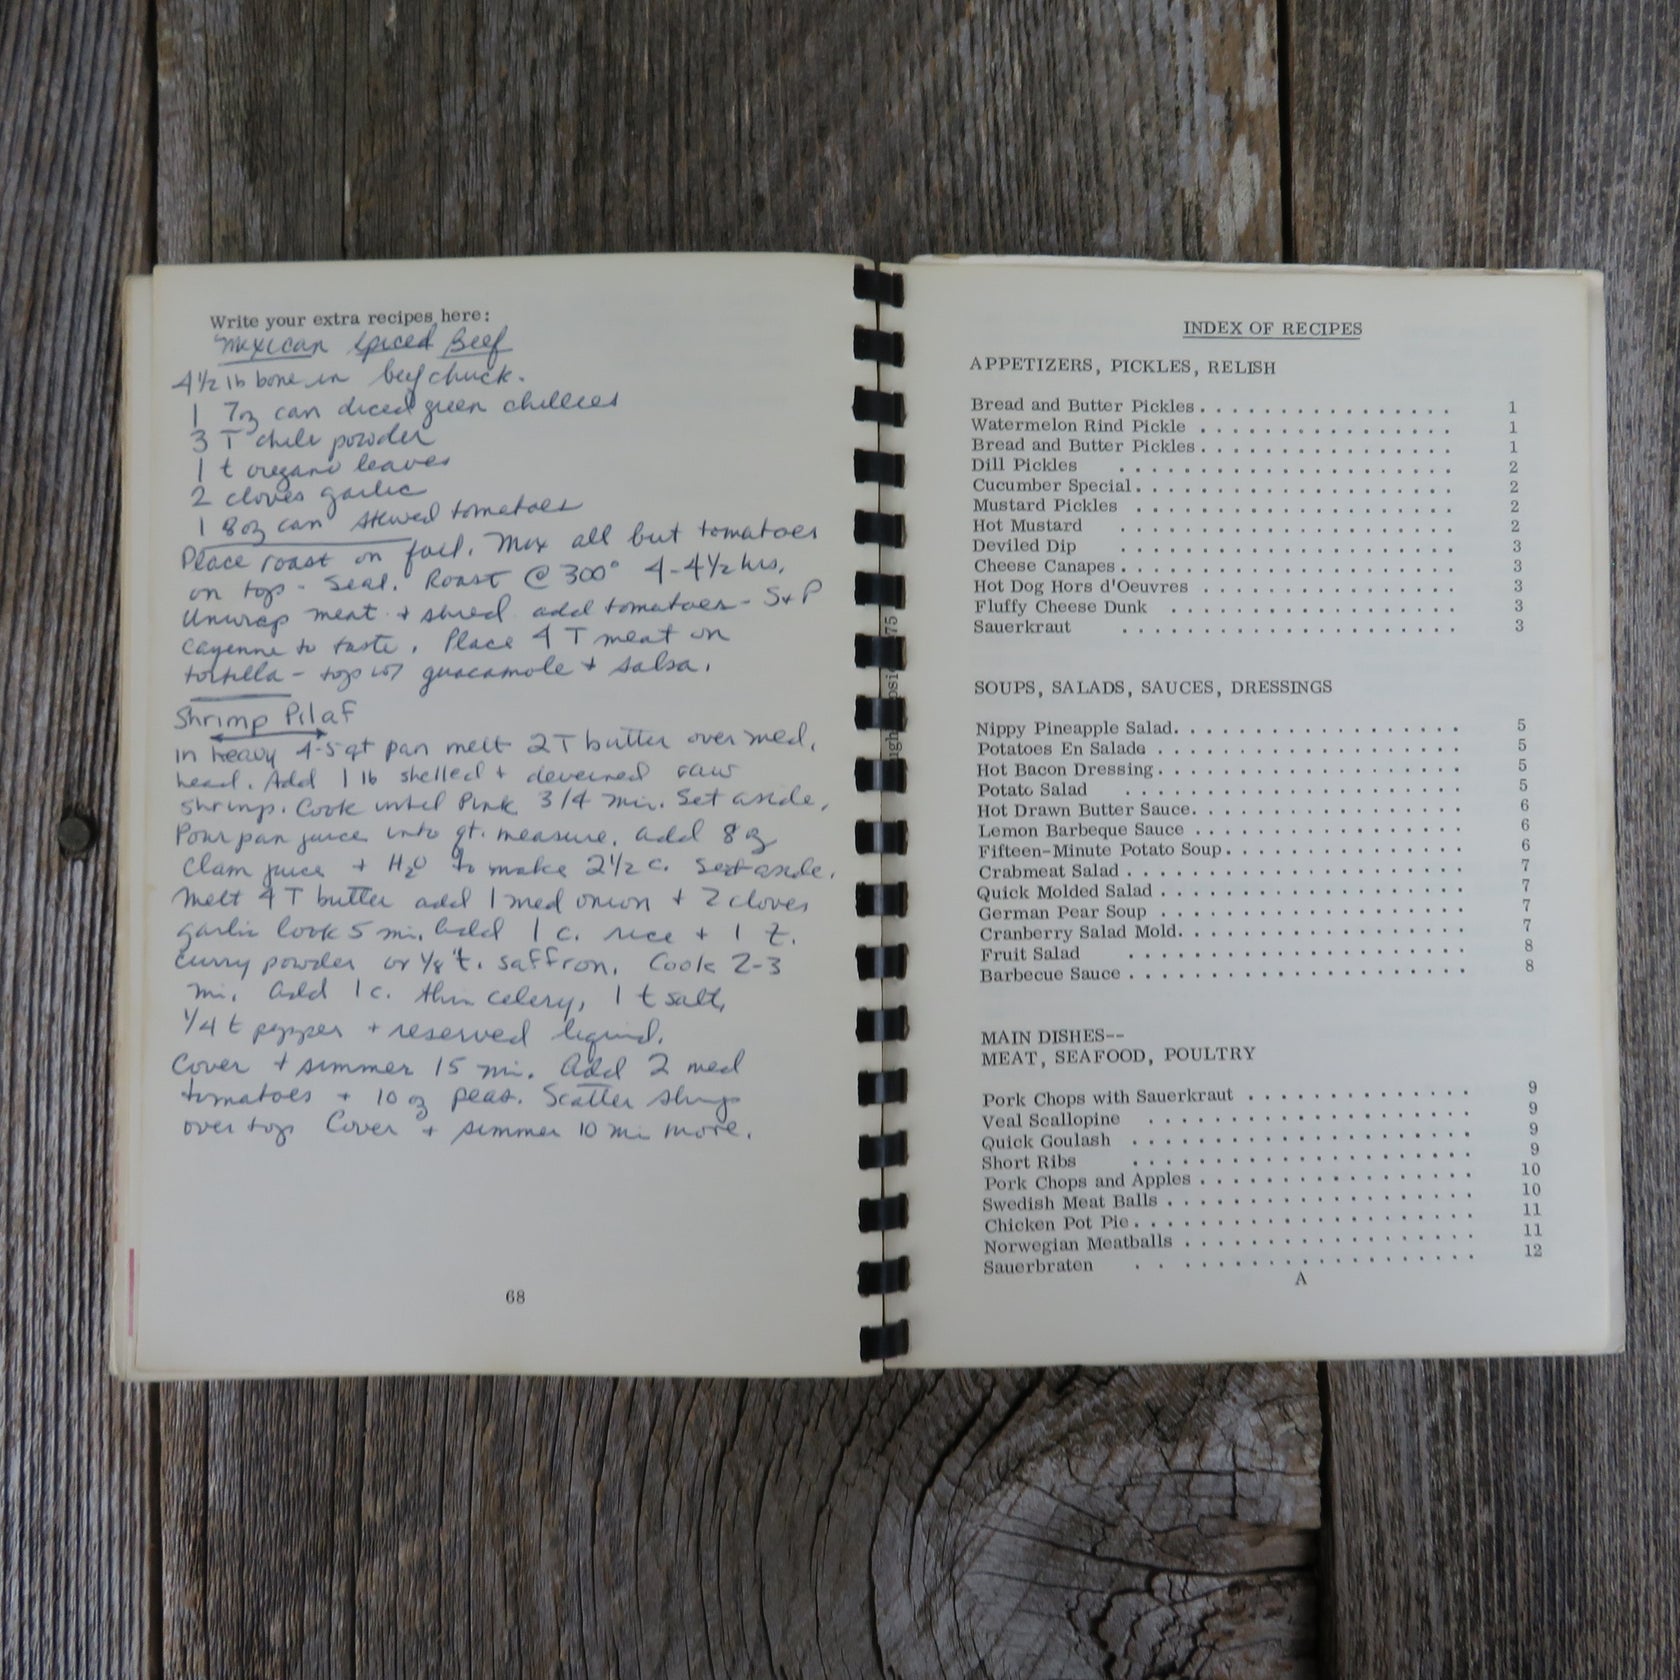 Write your extra recipes here:
Mexican Spiced Beef
4½ lb bone in beef chuck.
1 7oz can diced green chillies
3 T chili powder
1 t oregano leaves
2 cloves garlic
1 8 oz can stewed tomatoes
Place roast on foil. Mix all but tomatoes
on top - Seal. Roast @ 300° 4-4½ hrs.
Unwrap meat + shred add tomatoes - S+P
cayenne to taste. Place 4 T meat on
tortilla - top w/ guacamole + salsa.
Shrimp Pilaf
in heavy 4-5 qt pan melt 2 T butter over med.
head. Add 1 lb shelled + deveined raw
shrimp. Cook until Pink 3/4 min. Set aside.
Pour pan juice into qt. measure. add 8 oz
Clam juice + H2O to make 2½ c. Set aside.
Melt 4 T butter add 1 med onion + 2 cloves
garlic Cook 5 mi. add 1 c. rice + 1 t.
Curry powder or ⅛ t. saffron. Cook 2-3
mi. Add 1 c. thin celery, 1 t salt,
1/4 t pepper + reserved liquid.
Cover + simmer 15 mi. Add 2 med
tomatoes + 10 oz peas. Scatter shrimp
over top Cover + simmer 10 mi more.
68
75
INDEX OF RECIPES
APPETIZERS, PICKLES, RELISH
Bread and Butter Pickles . . . . . . . . . . . . . 1
Watermelon Rind Pickle . . . . . . . . . . . . . 1
Bread and Butter Pickles . . . . . . . . . . . . . 1
Dill Pickles . . . . . . . . . . . . . . . . 2
Cucumber Special . . . . . . . . . . . . . . . . 2
Mustard Pickles . . . . . . . . . . . . . . . . 2
Hot Mustard . . . . . . . . . . . . . . . . 2
Deviled Dip . . . . . . . . . . . . . . . . 3
Cheese Canapes . . . . . . . . . . . . . . . . 3
Hot Dog Hors d'Oeuvres . . . . . . . . . . . . . 3
Fluffy Cheese Dunk . . . . . . . . . . . . . . 3
Sauerkraut . . . . . . . . . . . . . . . . 3
SOUPS, SALADS, SAUCES, DRESSINGS
Nippy Pineapple Salad . . . . . . . . . . . . . . 5
Potatoes En Salade . . . . . . . . . . . . . . . 5
Hot Bacon Dressing . . . . . . . . . . . . . . . 5
Potato Salad . . . . . . . . . . . . . . . . 5
Hot Drawn Butter Sauce . . . . . . . . . . . . . 6
Lemon Barbeque Sauce . . . . . . . . . . . . . 6
Fifteen-Minute Potato Soup . . . . . . . . . . . . 6
Crabmeat Salad . . . . . . . . . . . . . . . . 7
Quick Molded Salad . . . . . . . . . . . . . . . 7
German Pear Soup . . . . . . . . . . . . . . . 7
Cranberry Salad Mold . . . . . . . . . . . . . . 7
Fruit Salad . . . . . . . . . . . . . . . . 8
Barbecue Sauce . . . . . . . . . . . . . . . . 8
MAIN DISHES--
MEAT, SEAFOOD, POULTRY
Pork Chops with Sauerkraut . . . . . . . . . . . 9
Veal Scallopine . . . . . . . . . . . . . . . 9
Quick Goulash . . . . . . . . . . . . . . . . 9
Short Ribs . . . . . . . . . . . . . . . . 9
Pork Chops and Apples . . . . . . . . . . . . . . 10
Swedish Meat Balls . . . . . . . . . . . . . . . 10
Chicken Pot Pie . . . . . . . . . . . . . . . . 11
Norwegian Meatballs . . . . . . . . . . . . . . 11
Sauerbraten . . . . . . . . . . . . . . . . 12
A